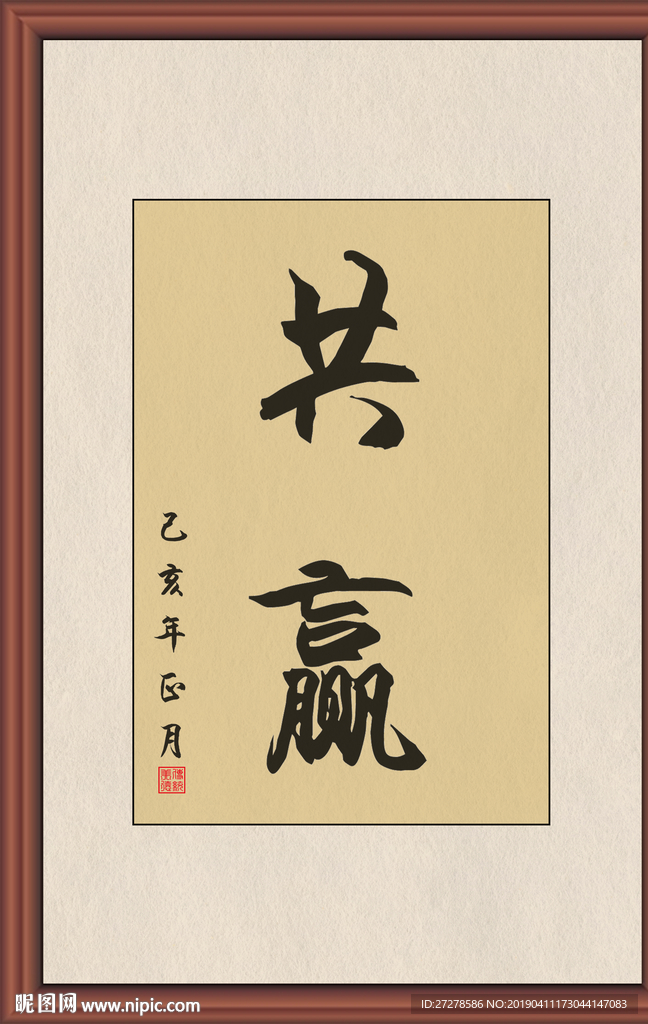 共赢
己亥年正月
传统美德
昵图网 www.nipic.com
ID:27278586 NO:20190411173044147083